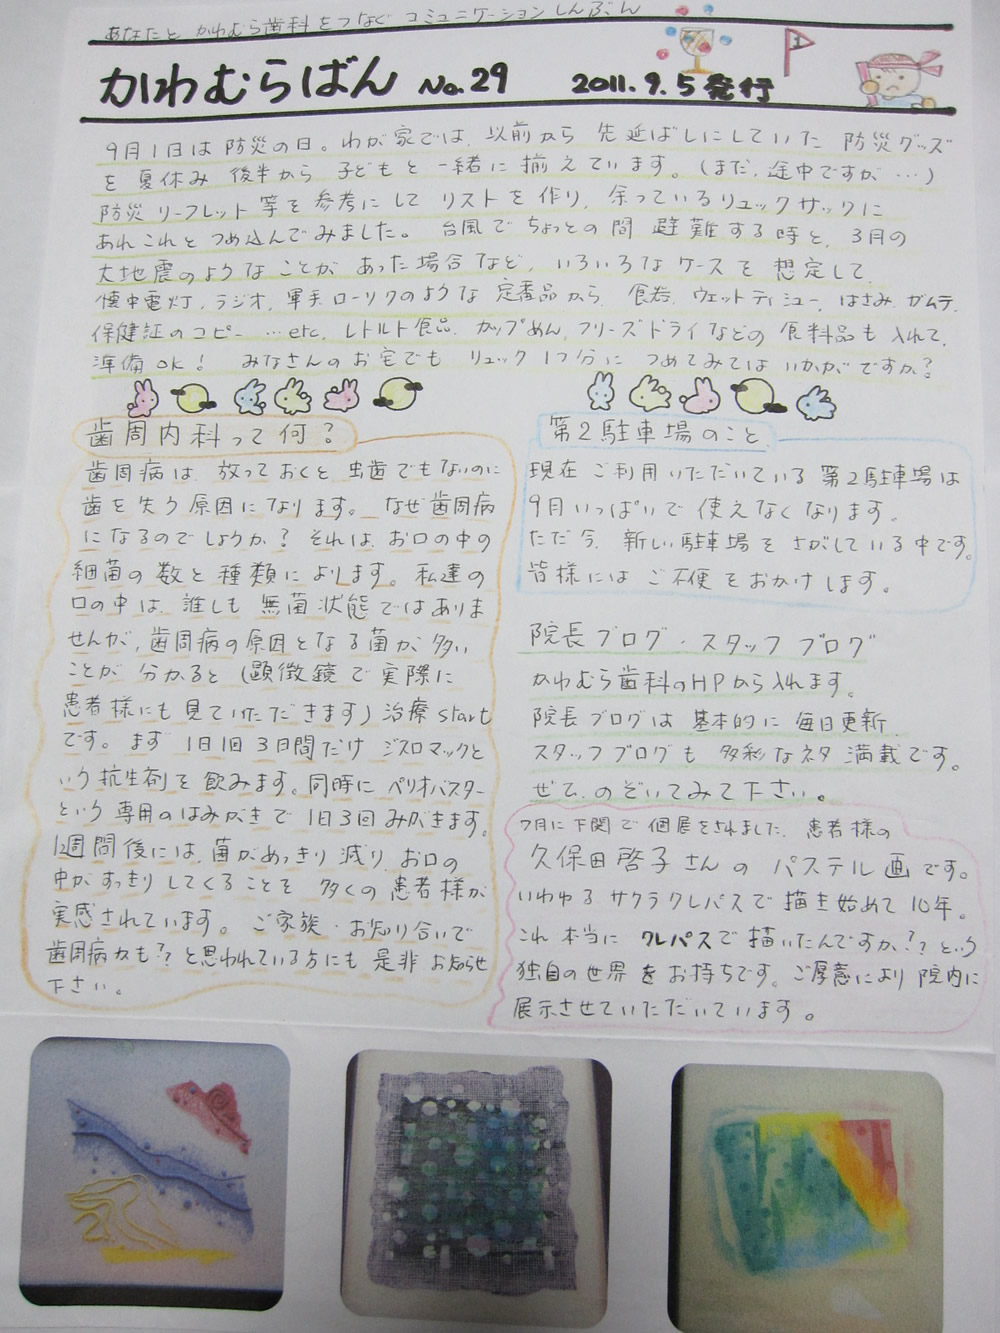 あなたと かわむら歯科をつなぐ コミュニケーションしんぶん
かわむらばん No.29 2011.9.5発行
1
9月1日は防災の日。わが家では、以前から 先延ばしにしていた 防災グッズ
を 夏休み 後半から 子どもと一緒に揃えています。(まだ、途中ですが…)
防災リーフレット等を参考にして リストを作り、余っているリュックサックに
あれこれと つめ込んでみました。 台風でちょっとの間 避難する時と、3月の
大地震のようなことが あった場合など、いろいろなケースを 想定して
懐中電灯、ラジオ、軍手、ローソクのような 定番品から、食器、ウェットティシュー、はさみ、ガムテ、
保健証のコピー…etc. レトルト食品、カップめん、フリーズドライなどの 食料品も入れて、
準備OK! みなさんのお宅でも リュック1つ分に つめてみては いかがですか?
歯周内科って何?
歯周病は、放っておくと 虫歯でもないのに
歯を失う原因になります。 なぜ歯周病
になるのでしょうか? それは、お口の中の
細菌の数と種類によります。私達の
口の中は、誰しも 無菌状態ではありま
せんが、歯周病の原因となる菌が、多い
ことが 分かると (顕微鏡で実際に
患者様にも見ていただきます)治療start
です。まず 1日1回3日間だけ ジスロマックと
いう抗生剤を飲みます。同時に ペリオバスター
という 専用のはみがきで 1日3回みがきます。
1週間後には、菌がめっきり減り、お口の
中が すっきりしてくることを 多くの患者様が
実感されています。 ご家族・お知り合いで
歯周病かも?? と思われている方にも 是非 お知らせ
下さい。
第2駐車場のこと
現在 ご利用いただいている 第2駐車場は
9月いっぱいで 使えなくなります。
ただ今、新しい駐車場を さがしている中です。
皆様には ご不便をおかけします。
院長ブログ・スタッフブログ
かわむら歯科のHPから入れます。
院長ブログは 基本的に 毎日更新
スタッフブログも 多彩なネタ 満載です。
ぜひ、のぞいてみて下さい。
7月に下関で個展をされました、患者様の
久保田啓子さんの パステル画です。
いわゆる サクラクレパスで 描き始めて10年。
これ本当に クレパスで描いたんですか??という
独自の世界をお持ちです。ご厚意により院内に
展示させていただいています。